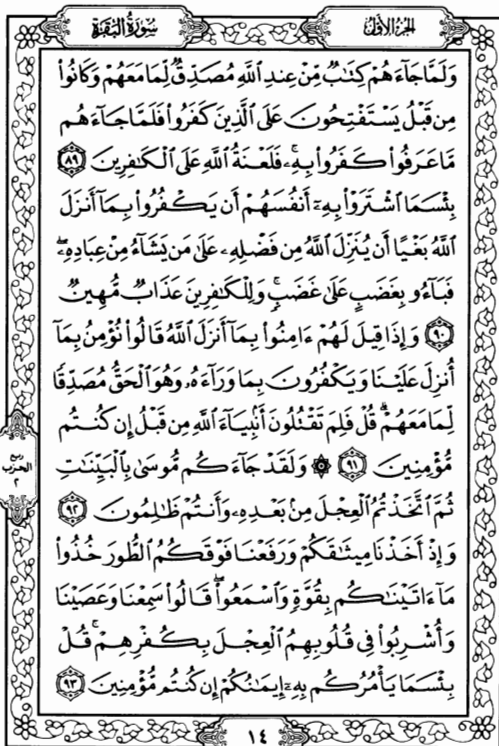 سُورَةُ البَقَرَةِ
الجُزءُ الأوَّل
وَلَمَّا جَآءَهُمْ كِتَٰبٌ مِّنْ عِندِ ٱللَّهِ مُصَدِّقٌ لِّمَا مَعَهُمْ وَكَانُوا۟
مِن قَبْلُ يَسْتَفْتِحُونَ عَلَى ٱلَّذِينَ كَفَرُوا۟ فَلَمَّا جَآءَهُم
مَّا عَرَفُوا۟ كَفَرُوا۟ بِهِۦ ۚ فَلَعْنَةُ ٱللَّهِ عَلَى ٱلْكَٰفِرِينَ ٨٩
بِئْسَمَا ٱشْتَرَوْا۟ بِهِۦٓ أَنفُسَهُمْ أَن يَكْفُرُوا۟ بِمَآ أَنزَلَ
ٱللَّهُ بَغْيًا أَن يُنَزِّلَ ٱللَّهُ مِن فَضْلِهِۦ عَلَىٰ مَن يَشَآءُ مِنْ عِبَادِهِۦ ۖ
فَبَآءُو بِغَضَبٍ عَلَىٰ غَضَبٍ ۚ وَلِلْكَٰفِرِينَ عَذَابٌ مُّهِينٌ
٩٠ وَإِذَا قِيلَ لَهُمْ ءَامِنُوا۟ بِمَآ أَنزَلَ ٱللَّهُ قَالُوا۟ نُؤْمِنُ بِمَآ
أُنزِلَ عَلَيْنَا وَيَكْفُرُونَ بِمَا وَرَآءَهُۥ وَهُوَ ٱلْحَقُّ مُصَدِّقًا
لِّمَا مَعَهُمْ ۗ قُلْ فَلِمَ تَقْتُلُونَ أَنۢبِيَآءَ ٱللَّهِ مِن قَبْلُ إِن كُنتُم
مُّؤْمِنِينَ ٩١ ۞ وَلَقَدْ جَآءَكُم مُّوسَىٰ بِٱلْبَيِّنَٰتِ
ثُمَّ ٱتَّخَذْتُمُ ٱلْعِجْلَ مِنۢ بَعْدِهِۦ وَأَنتُمْ ظَٰلِمُونَ ٩٢
وَإِذْ أَخَذْنَا مِيثَٰقَكُمْ وَرَفَعْنَا فَوْقَكُمُ ٱلطُّورَ خُذُوا۟
مَآ ءَاتَيْنَٰكُم بِقُوَّةٍ وَٱسْمَعُوا۟ ۖ قَالُوا۟ سَمِعْنَا وَعَصَيْنَا
وَأُشْرِبُوا۟ فِى قُلُوبِهِمُ ٱلْعِجْلَ بِكُفْرِهِمْ ۚ قُلْ
بِئْسَمَا يَأْمُرُكُم بِهِۦٓ إِيمَٰنُكُمْ إِن كُنتُم مُّؤْمِنِينَ ٩٣
ربع
الحزب
٢
١٤